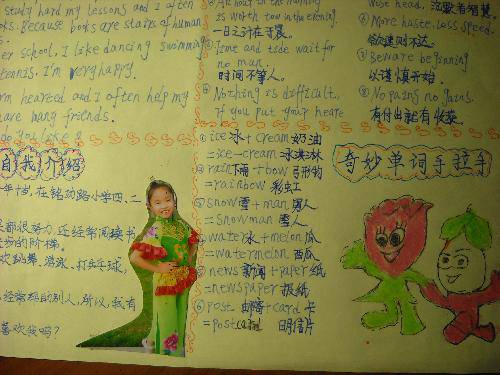 study hard my lessons and I often
Because books are stairs of human
er school, I like dancing swimming
tennis. I'm very happy.
rm hearted and I often help my
are many friends.
do you like
自我介绍
年十岁,在铭功路小学四、二
都很努力,还经常阅读书
步的阶梯.
欢跳舞、游泳、打乒乓球,
经常帮助别人,所以,我有
喜欢我吗?
is worth two in the evening
一日之计在于晨.
Time and tide wait for
no man.
时间不等人.
Nothing is difficult,
if you put your heart
wise head,
④ More haste, less speed.
欲速则不达.
⑤ Beware beginning
以谨慎开始.
⑥ No pains no gains.
有付出就有收获.
① ice 冰 + cream 奶油
= ice-cream 冰淇淋
② rain 雨 + bow 弓形物
= rainbow 彩虹
③ snow 雪 + man 男人
= snowman 雪人
④ water 水 + melon 瓜
= watermelon 西瓜
⑤ news 新闻 + paper 纸
= newspaper 报纸
⑥ post 邮寄 + card 卡
= postcard 明信片
奇妙单词手拉手